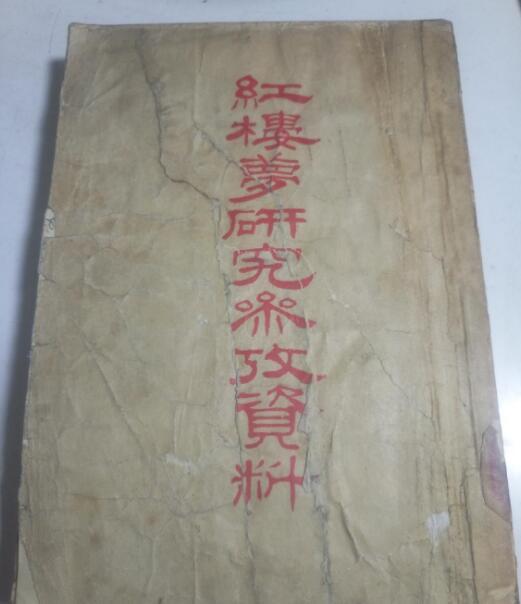 紅樓夢研究参攷資料